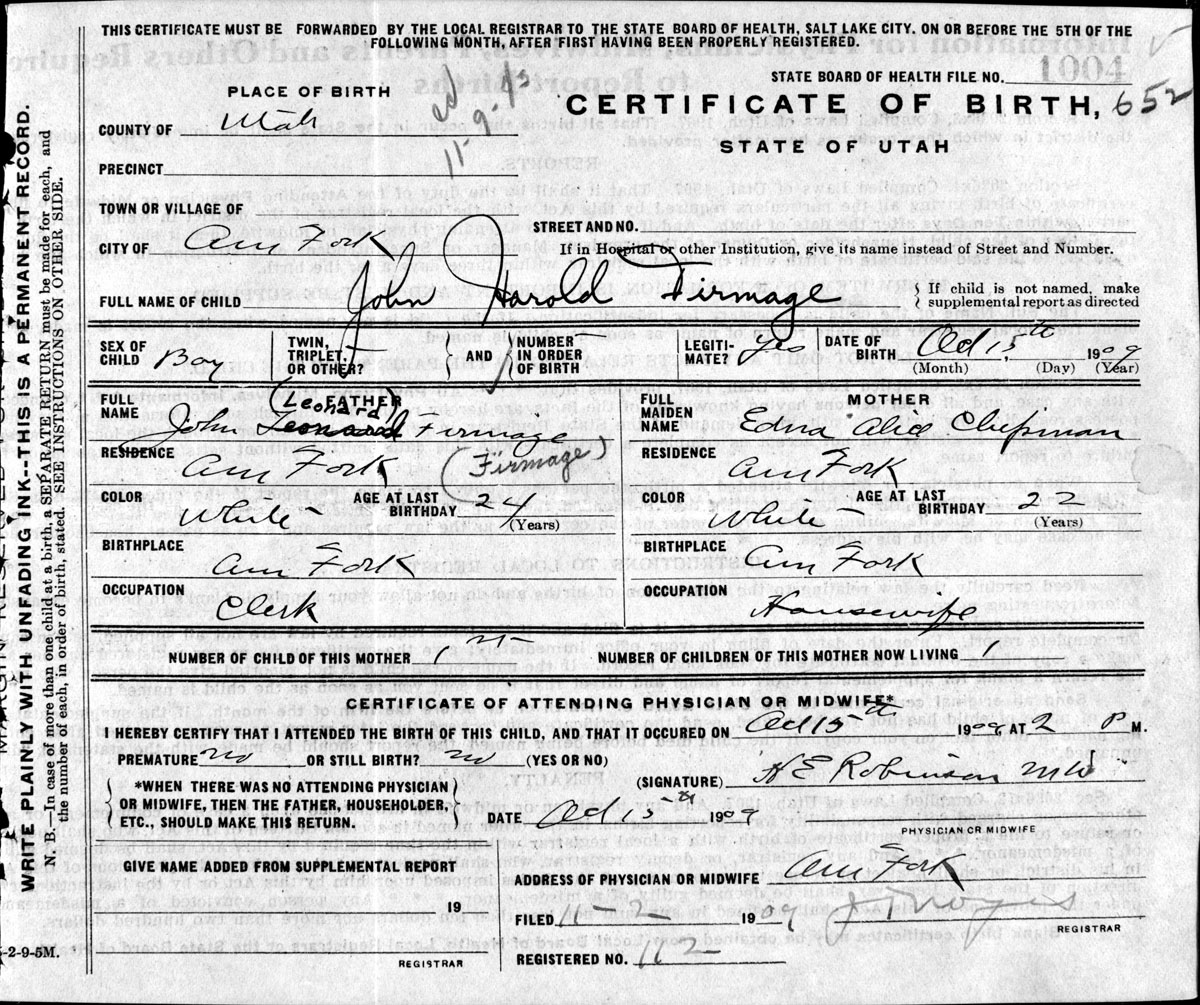 THIS CERTIFICATE MUST BE FORWARDED BY THE LOCAL REGISTRAR TO THE STATE BOARD OF HEALTH, SALT LAKE CITY, ON OR BEFORE THE 5TH OF THE
FOLLOWING MONTH, AFTER FIRST HAVING BEEN PROPERLY REGISTERED.
STATE BOARD OF HEALTH FILE NO. 1004
PLACE OF BIRTH
CERTIFICATE OF BIRTH, 652
STATE OF UTAH
COUNTY OF Utah
PRECINCT
TOWN OR VILLAGE OF
STREET AND NO.
CITY OF Am Fork
If in Hospital or other Institution, give its name instead of Street and Number.
FULL NAME OF CHILD John Harold Firmage
{ If child is not named, make
supplemental report as directed
SEX OF CHILD Boy
TWIN, TRIPLET, OR OTHER?
AND { NUMBER IN ORDER OF BIRTH
LEGITI- MATE? Yes
DATE OF BIRTH Oct 15th 1909
(Month) (Day) (Year)
FULL NAME
FATHER
(Leonard
John Leonard Firmage
(Firmage)
RESIDENCE Am Fork
COLOR White
AGE AT LAST BIRTHDAY 24
(Years)
BIRTHPLACE Am Fork
OCCUPATION Clerk
FULL MAIDEN NAME
MOTHER
Edna Alice Chipman
RESIDENCE Am Fork
COLOR White
AGE AT LAST BIRTHDAY 22
(Years)
BIRTHPLACE Am Fork
OCCUPATION Housewife
NUMBER OF CHILD OF THIS MOTHER 1st
NUMBER OF CHILDREN OF THIS MOTHER NOW LIVING 1
CERTIFICATE OF ATTENDING PHYSICIAN OR MIDWIFE*
I HEREBY CERTIFY THAT I ATTENDED THE BIRTH OF THIS CHILD, AND THAT IT OCCURED ON Oct 15th 1909 AT 2 P M.
PREMATURE no OR STILL BIRTH? no (YES OR NO)
(SIGNATURE) H E Robinson MD
*WHEN THERE WAS NO ATTENDING PHYSICIAN
OR MIDWIFE, THEN THE FATHER, HOUSEHOLDER,
ETC., SHOULD MAKE THIS RETURN.
DATE Oct 15th 1909
PHYSICIAN OR MIDWIFE
GIVE NAME ADDED FROM SUPPLEMENTAL REPORT
19
REGISTRAR
ADDRESS OF PHYSICIAN OR MIDWIFE Am Fork
FILED 11-2 1909
REGISTRAR
REGISTERED NO. 112
WRITE PLAINLY WITH UNFADING INK--THIS IS A PERMANENT RECORD.
N. B.—In case of more than one child at a birth, a SEPARATE RETURN must be made for each, and
the number of each, in order of birth, stated. SEE INSTRUCTIONS ON OTHER SIDE.
-2-9-5M.